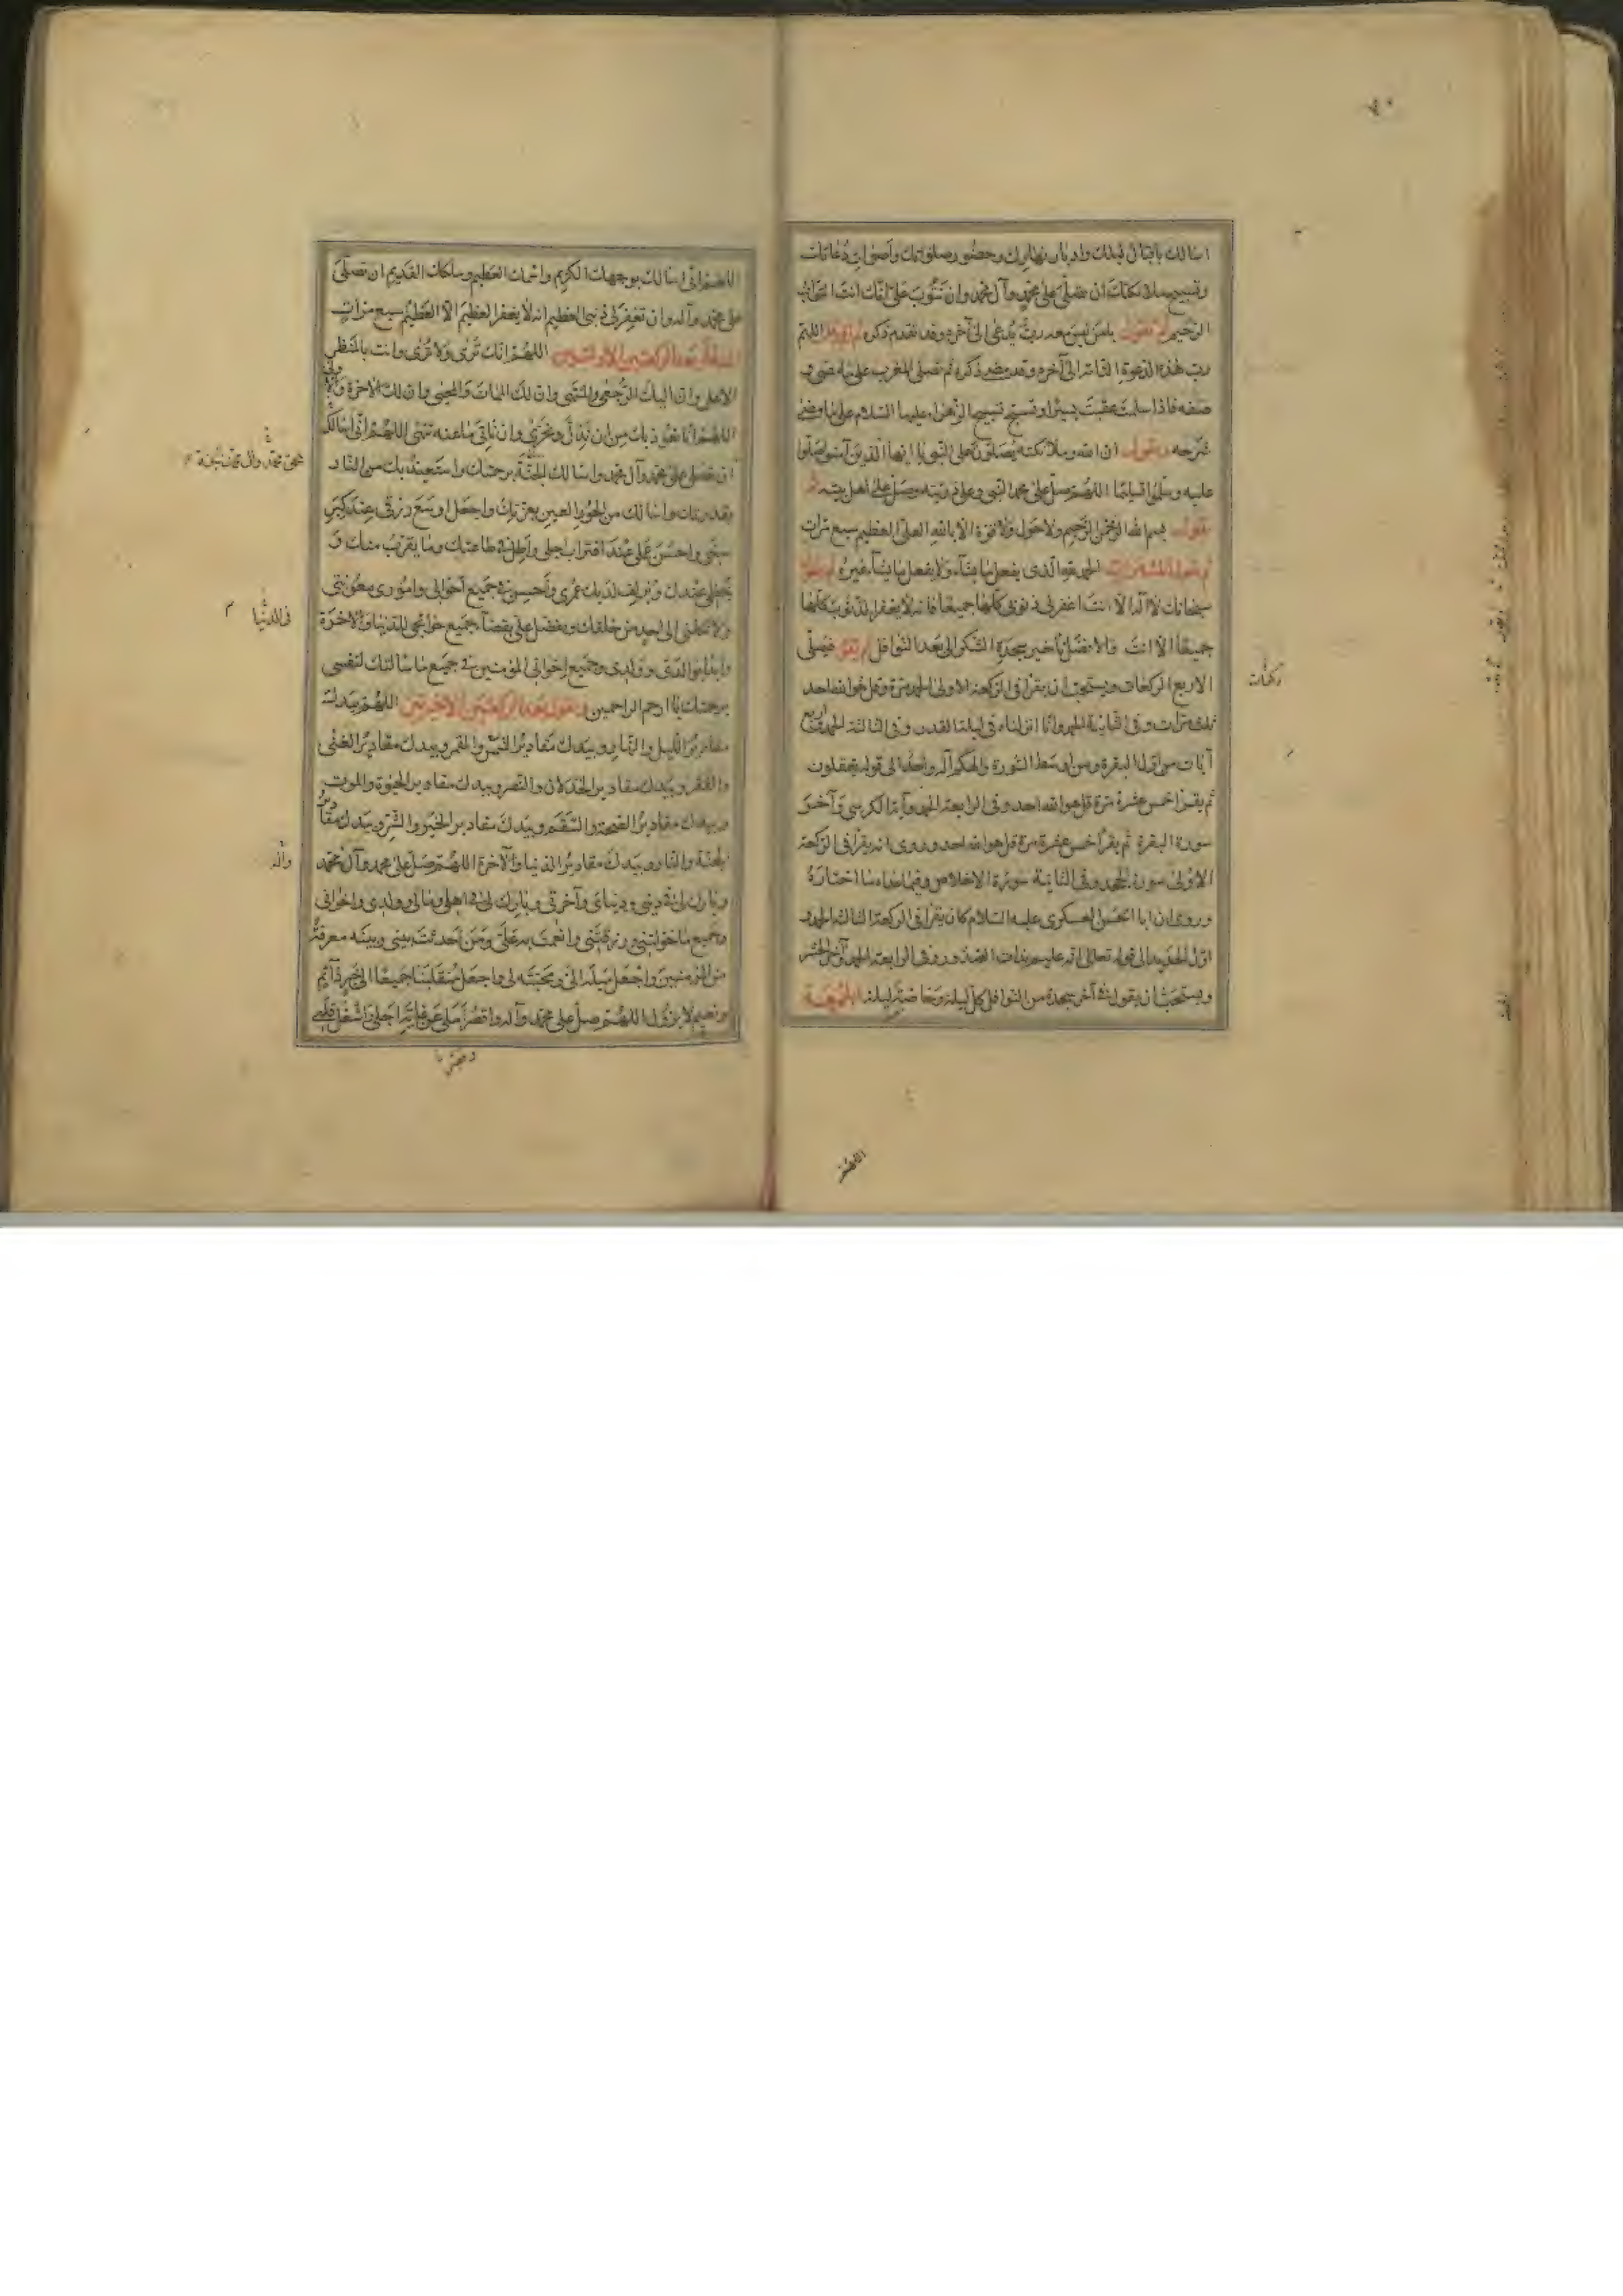 اسالك باقبال ليلك وادبار نهارك وحضور صلوتك واصوات دعاتك
وتسبيح ملائكتك ان تصلى على محمد وآل محمد وان تتوب على انك انت التواب
الرحيم ثم تقول يامن ليس معه رب يدعى الى آخره وقد تقدم ذكره ثم تقول اللهم
رب هذه الدعوة التامة الى آخره وقد مضى ذكره ثم تصلى المغرب على ما مضى و
صفه فاذا سلمت عقبت يسيرا وتسبح تسبيح الزهراء عليها السلام على ما مضى
شرحه وتقول ان الله وملائكته يصلون على النبى يا ايها الذين آمنوا صلوا
عليه وسلموا تسليما اللهم صل على محمد النبى وعلى ذريته وصل على اهل بيته ثم
تقول بسم الله الرحمن الرحيم ولا حول ولا قوة الا بالله العلى العظيم سبع مرات
ثم تقول ثلث مرات الحمد لله الذى يفعل ما يشاء ولا يفعل ما يشاء غيره ثم تقول
سبحانك لا اله الا انت اغفر لى ذنوبى كلها جميعا فانه لا يغفر الذنوب كلها
جميعا الا انت والافضل تأخير سجدة الشكر الى بعد النوافل ثم تقوم فيصلى
الاربع الركعات ويستحب ان يقرأ فى الركعة الاولى الحمد مرة وقل هو الله احد
ثلث مرات وفى الثانية الحمد وانا انزلناه فى ليلة القدر وفى الثالثة الحمد واربع
آيات من اول البقرة ومن وسط السورة والهكم اله واحد الى قوله يعقلون
ثم يقرأ خمس عشرة مرة قل هو الله احد وفى الرابعة الحمد وآية الكرسى وآخر
سورة البقرة ثم يقرأ خمس عشرة مرة قل هو الله احد وروى انه يقرأ فى الركعة
الاولى سورة الجحد وفى الثانية سورة الاخلاص وفيما عداه ما اختاره
وروى ان ابا الحسن العسكرى عليه السلام كان يقرأ فى الركعة الثالثة الحمد و
اول الحديد الى قوله تعالى انه عليم بذات الصدور وفى الرابعة الحمد وآخر الحشر
ويستحب ان يقول فى آخر سجدة من النوافل كل ليلة وخاصة ليلة الجمعة
ركعات
اللهم
اللهم انى اسالك بوجهك الكريم واسمك العظيم وملكك القديم ان تصلى
على محمد وآله وان تغفر لى ذنبى العظيم انه لا يغفر العظيم الا العظيم سبع مرات
بعد الركعتين الاولتين اللهم انك ترى ولا ترى وانت بالمنظر
الاعلى وان اليك الرجعى والمنتهى وان لك الممات والمحيى وان لك الآخرة والاولى
اللهم انا نعوذ بك من ان نذل ونخزى وان ناتى ما عنه تنهى اللهم انى اسالك
ان تصلى على محمد وآل محمد واسالك الجنة برحمتك واستعيذ بك من النار
بقدرتك واسالك من الحور العين بعزتك واجعل اوسع رزقى عند كبر
سنى واحسن عملى عند اقتراب اجلى واطل فى طاعتك وما يقرب منك و
يحظى عندك ويزلف لديك عمرى واحسن فى جميع احوالى وامورى معونتى
ولا تكلنى الى احد من خلقك وتفضل على بقضاء جميع حوائجى للدنيا والآخرة
وابدأ بوالدى وولدى وجميع اخوانى المؤمنين فى جميع ما سالتك لنفسى
برحمتك يا ارحم الراحمين وتقول بعد الركعتين الاخرتين اللهم بيدك
مقادير الليل والنهار وبيدك مقادير الشمس والقمر وبيدك مقادير الغنى
والفقر وبيدك مقادير الخذلان والنصر وبيدك مقادير الحيوة والموت
وبيدك مقادير الصحة والسقم وبيدك مقادير الخير والشر وبيدك مقادير
الجنة والنار وبيدك مقادير الدنيا والآخرة اللهم صل على محمد وآل محمد
وبارك لى فى دينى ودنياى وآخرتى وبارك لى فى اهلى ومالى وولدى واخوانى
وجميع ما خولتنى ورزقتنى وانعمت به على ومن احدثت بينى وبينه معرفة
من المؤمنين واجعل ميله الى ومحبته لى واجعل منقلبنا جميعا الى خير دائم
ونعيم لا يزول اللهم صل على محمد وآله واقصر املى عن غاية اجلى واشغل قلبى
فى الدنيا
وآله